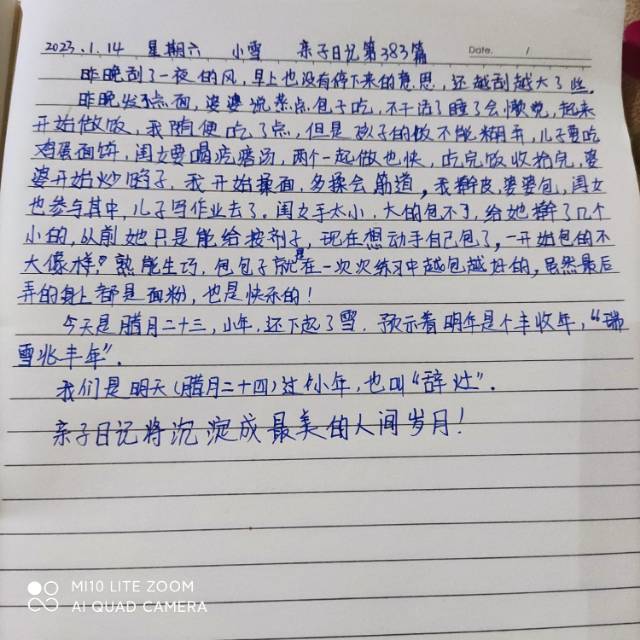 2023.1.14 星期六 小雪 亲子日记第383篇 Date. /
昨晚刮了一夜的风，早上也没有停下来的意思，还越刮越大了些。
昨晚发了点面，婆婆说蒸点包子吃，不干活了睡了会懒觉，起来
开始做饭，我随便吃了点，但是孩子的饭不能糊弄，儿子要吃
鸡蛋面饼，闺女要喝疙瘩汤，两个一起做也快，吃完饭收拾完，婆
婆开始炒馅子，我开始揉面，多揉会筋道，我擀皮，婆婆包，闺女
也参与其中，儿子写作业去了。闺女手太小，大的包不了，给她擀了几个
小的，从前她只是能给按剂子，现在想动手自己包了，一开始包的不
大像样，熟能生巧，包包子就是在一次次练习中越包越好的，虽然最后
弄的身上都是面粉，也是快乐的！
今天是腊月二十三，小年，还下起了雪，预示着明年是个丰收年，“瑞
雪兆丰年”．
我们是明天（腊月二十四）过小年，也叫“辞灶”．
亲子日记将沉淀成最美的人间岁月！
MI10 LITE ZOOM
AI QUAD CAMERA